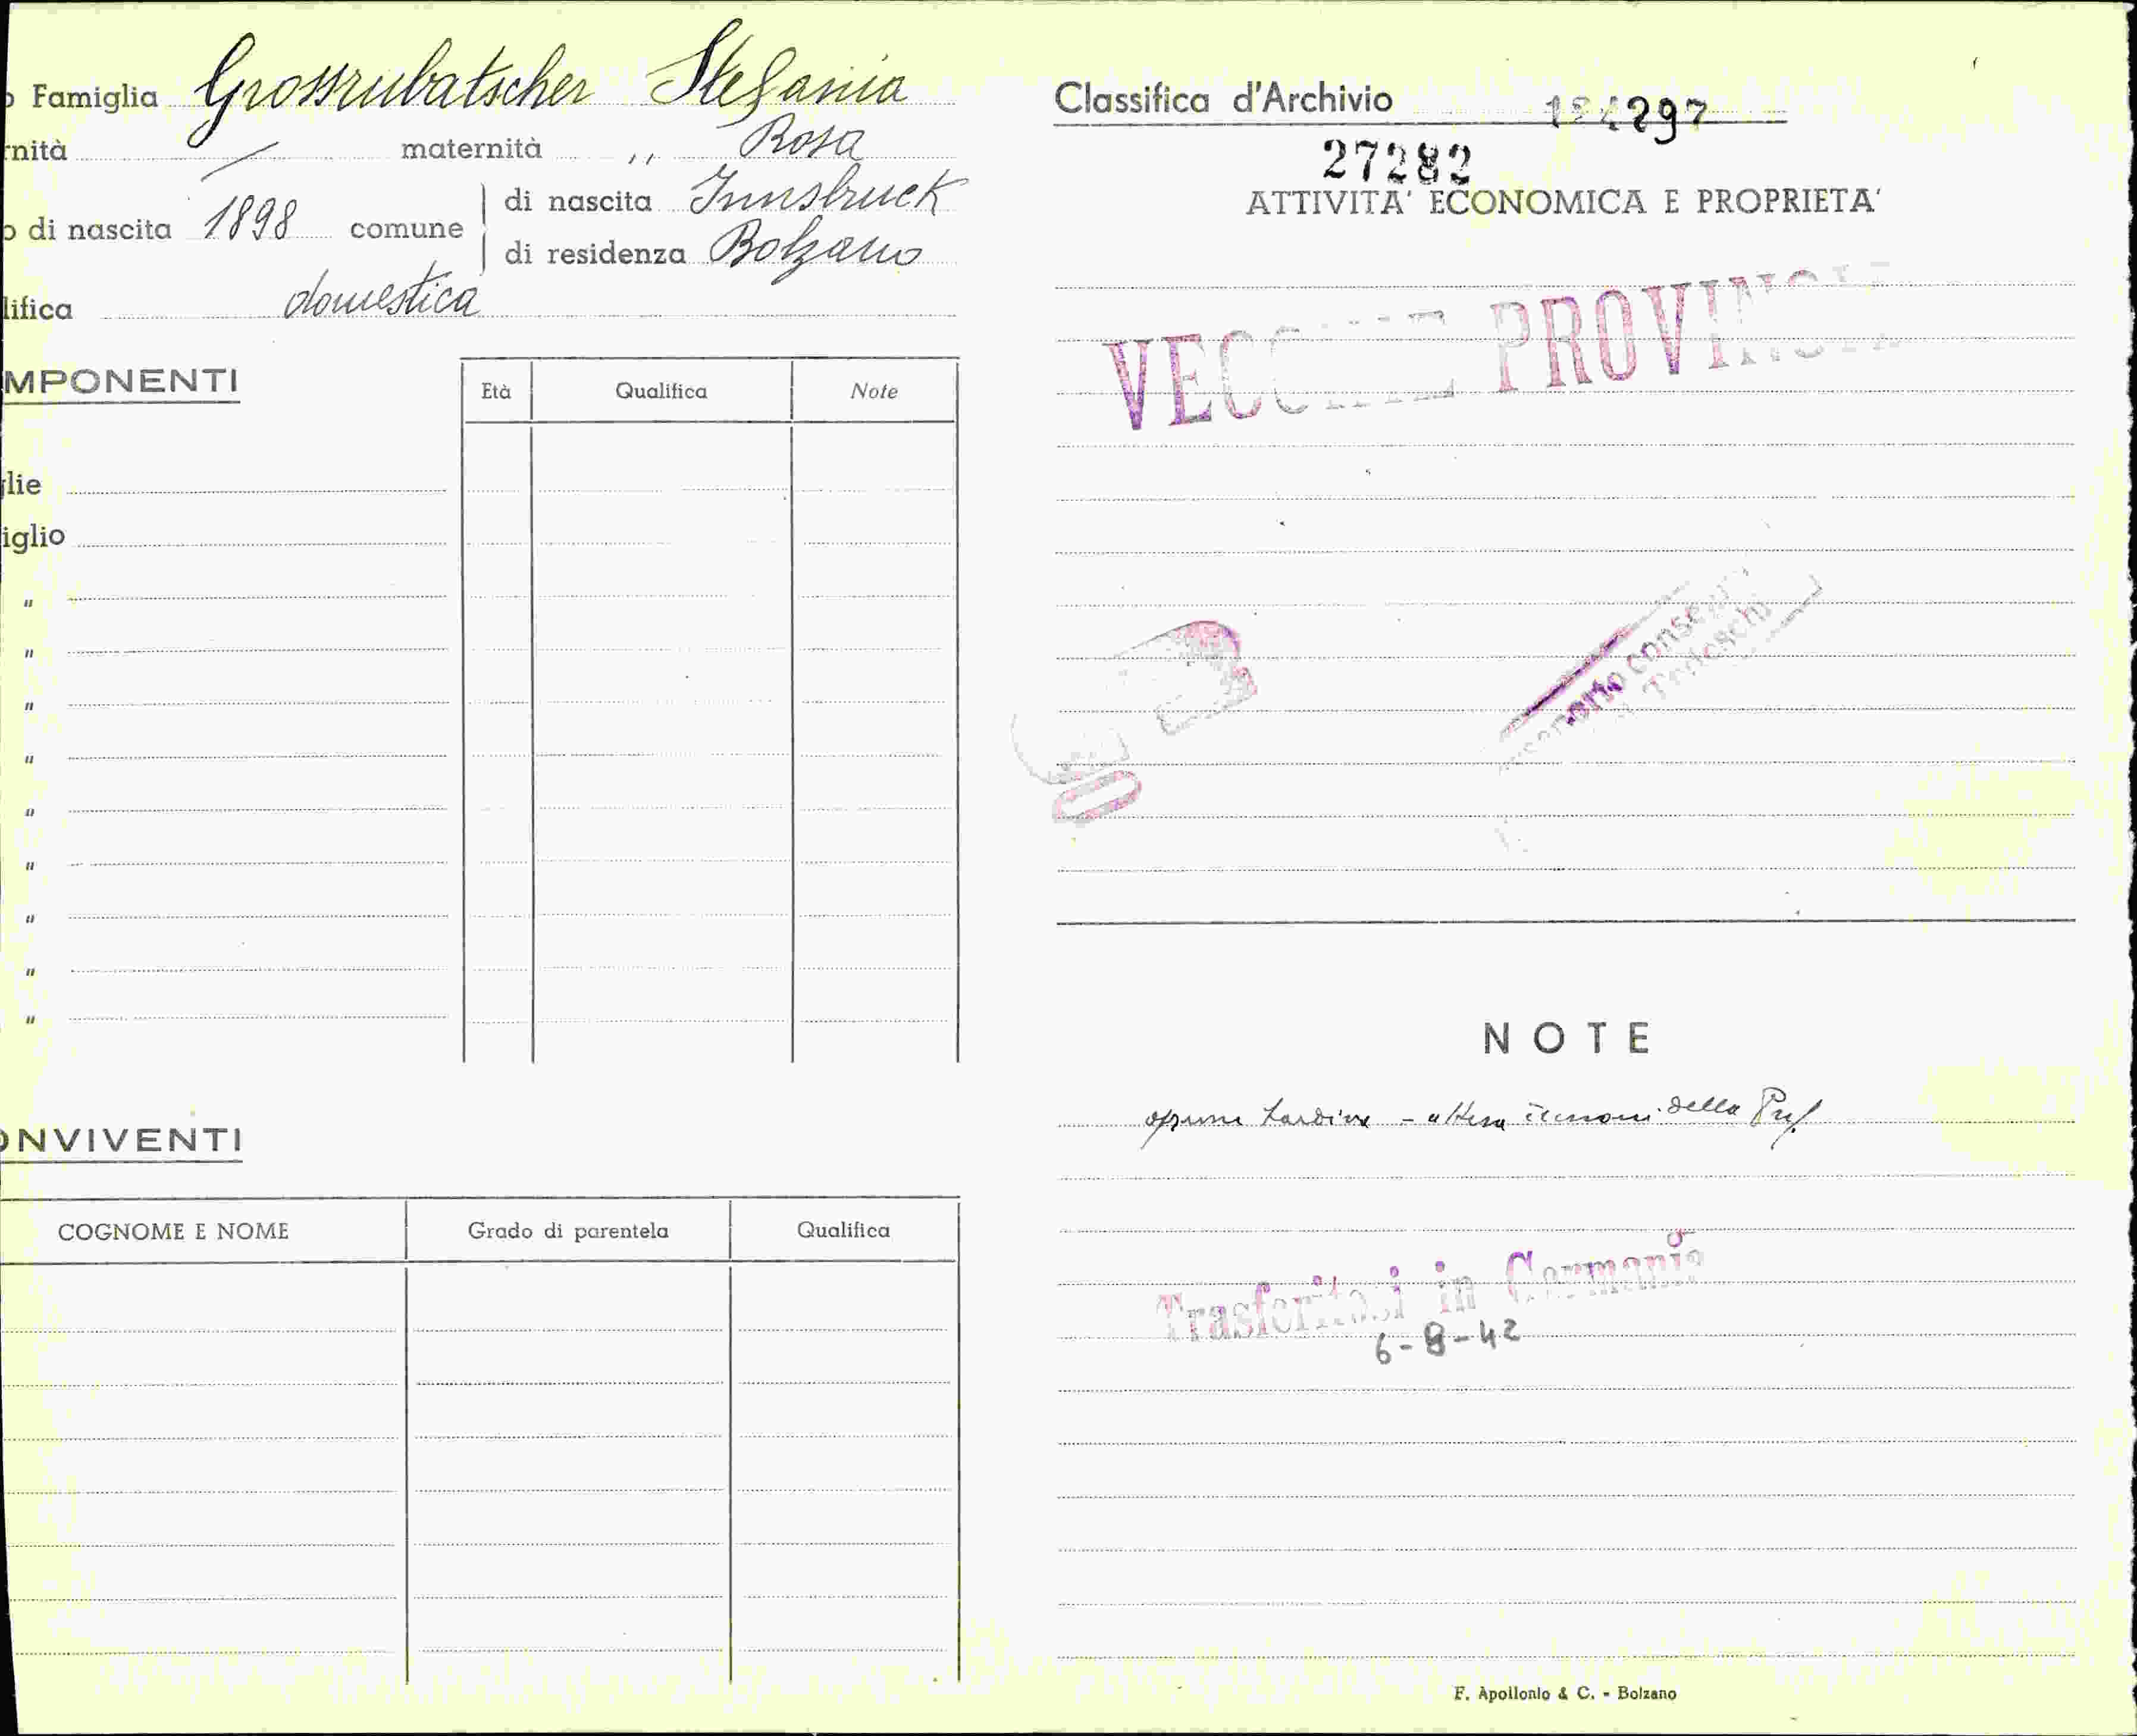 Famiglia Grossrubatscher Stefania
nità maternità ,, Rosa
di nascita 1898 comune
di nascita Innsbruck
di residenza Bolzano
lifica domestica
MPONENTI
Età Qualifica Note
lie
iglio
"
"
"
"
"
"
"
"
"
NVIVENTI
COGNOME E NOME Grado di parentela Qualifica
Classifica d'Archivio 184297
27282
ATTIVITA' ECONOMICA E PROPRIETA'
VECCHIE PROVINCIE
Tedeschi
NOTE
della Pref.
Trasferitosi in Germania
6-8-42
F. Apollonio & C. - Bolzano